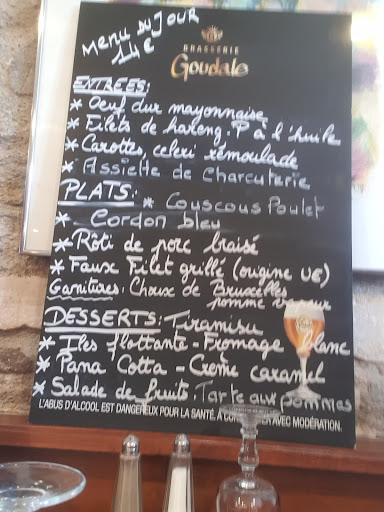 Menu du Jour
14€
BRASSERIE
Goudale
ENTREES:
* Oeuf dur mayonnaise
* Filets de hareng. P à l'huile
* Carottes celeri rémoulade
* Assiette de Charcuterie
PLATS: * Couscous Poulet
* Cordon bleu
* Rôti de porc braisé
* Faux Filet grillé (origine UE)
Garnitures: Choux de Bruxelles
pomme vapeur
DESSERTS: Tiramisu
* Iles flottante - Fromage blanc
* Pana Cotta - Creme caramel
* Salade de fruits. Tarte aux pommes
L'ABUS D'ALCOOL EST DANGEREUX POUR LA SANTÉ, À CONSOMMER AVEC MODÉRATION.